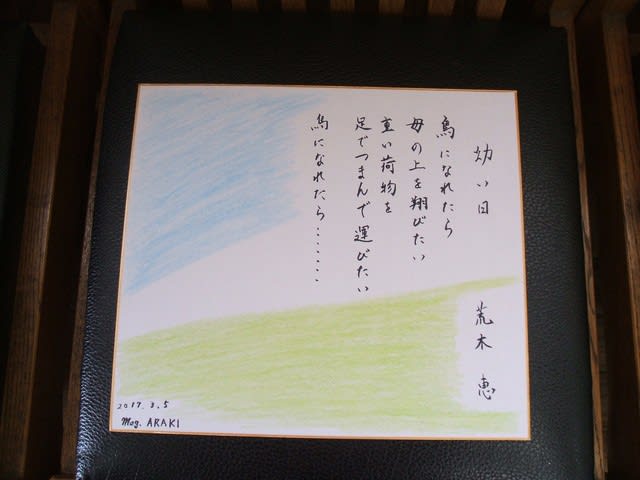 幼い日
荒木 恵
鳥になれたら
母の上を翔びたい
重い荷物を
足でつまんで運びたい
鳥になれたら……
2017.3.5
Meg. ARAKI